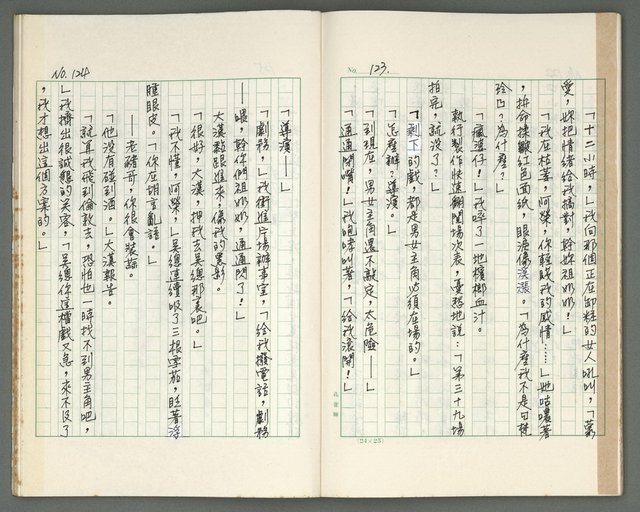 No. 123.
「十二小時，」我向那個正在卸粧的女人吼叫，「萬
愛，妳把情緒給我搞對，幹妳祖奶奶！」
「我在枯萎，阿榮，你輕賤我的感情……」她咕噥著
，拚命揉皺紅色面紙，眼淚像溪漲。「為什麼我不是白梵
玲凸？為什麼？」
「瘋道仔！」我啐了一地檳榔血汁。
執行製作快速翻閱場次表，憂愁地說：「第三十九場
拍完，就沒了？」
「剩下的戲，都是男女主角必須在場的。」
「怎麼辦？導演。」
「到現在，男女主角還不敲定，太危險——」
「通通閉嘴！」我咆哮叫著，「給我滾開！」
孔雀牌
(24×25)
No. 124
「導演——」
「劇務，」我衝進片場辦事室，「給我撥電話，劇務
——喂，幹你們祖奶奶，通通閃了！」
大漢黏跟進來，像我的黑影。
「很好，大漢，押我去吳總那裏吧。」
「我不懂，阿榮，」吳總連續吸了三根雪茄，眨著浮
腫眼皮。「你在胡言亂語。」
——老豬哥，你很會裝蒜。
「他沒有碰到酒。」大漢報告。
「就算我飛到倫敦去，恐怕也一時找不到男主角吧，
」我擠出很誠懇的笑容，「吳總你這檔戲又急，來不及了
，我才想出這個方案的。」